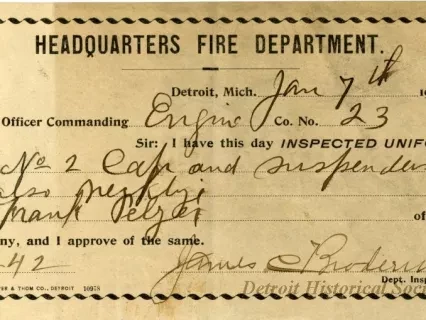 HEADQUARTERS FIRE DEPARTMENT.
Detroit, Mich. Jan 7th 19
Officer Commanding Engine Co. No. 23
Sir: I have this day INSPECTED UNIFO
No 2 Cap and suspender
also
Frank
of
ny, and I approve of the same.
42 James C Broderi
Dept. Insp
& THOM CO., DETROIT 10978
Detroit Historical Soc